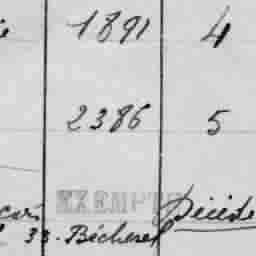 1891 4
2386 5
EXEMPTÉ Décédé
33. Bécherel